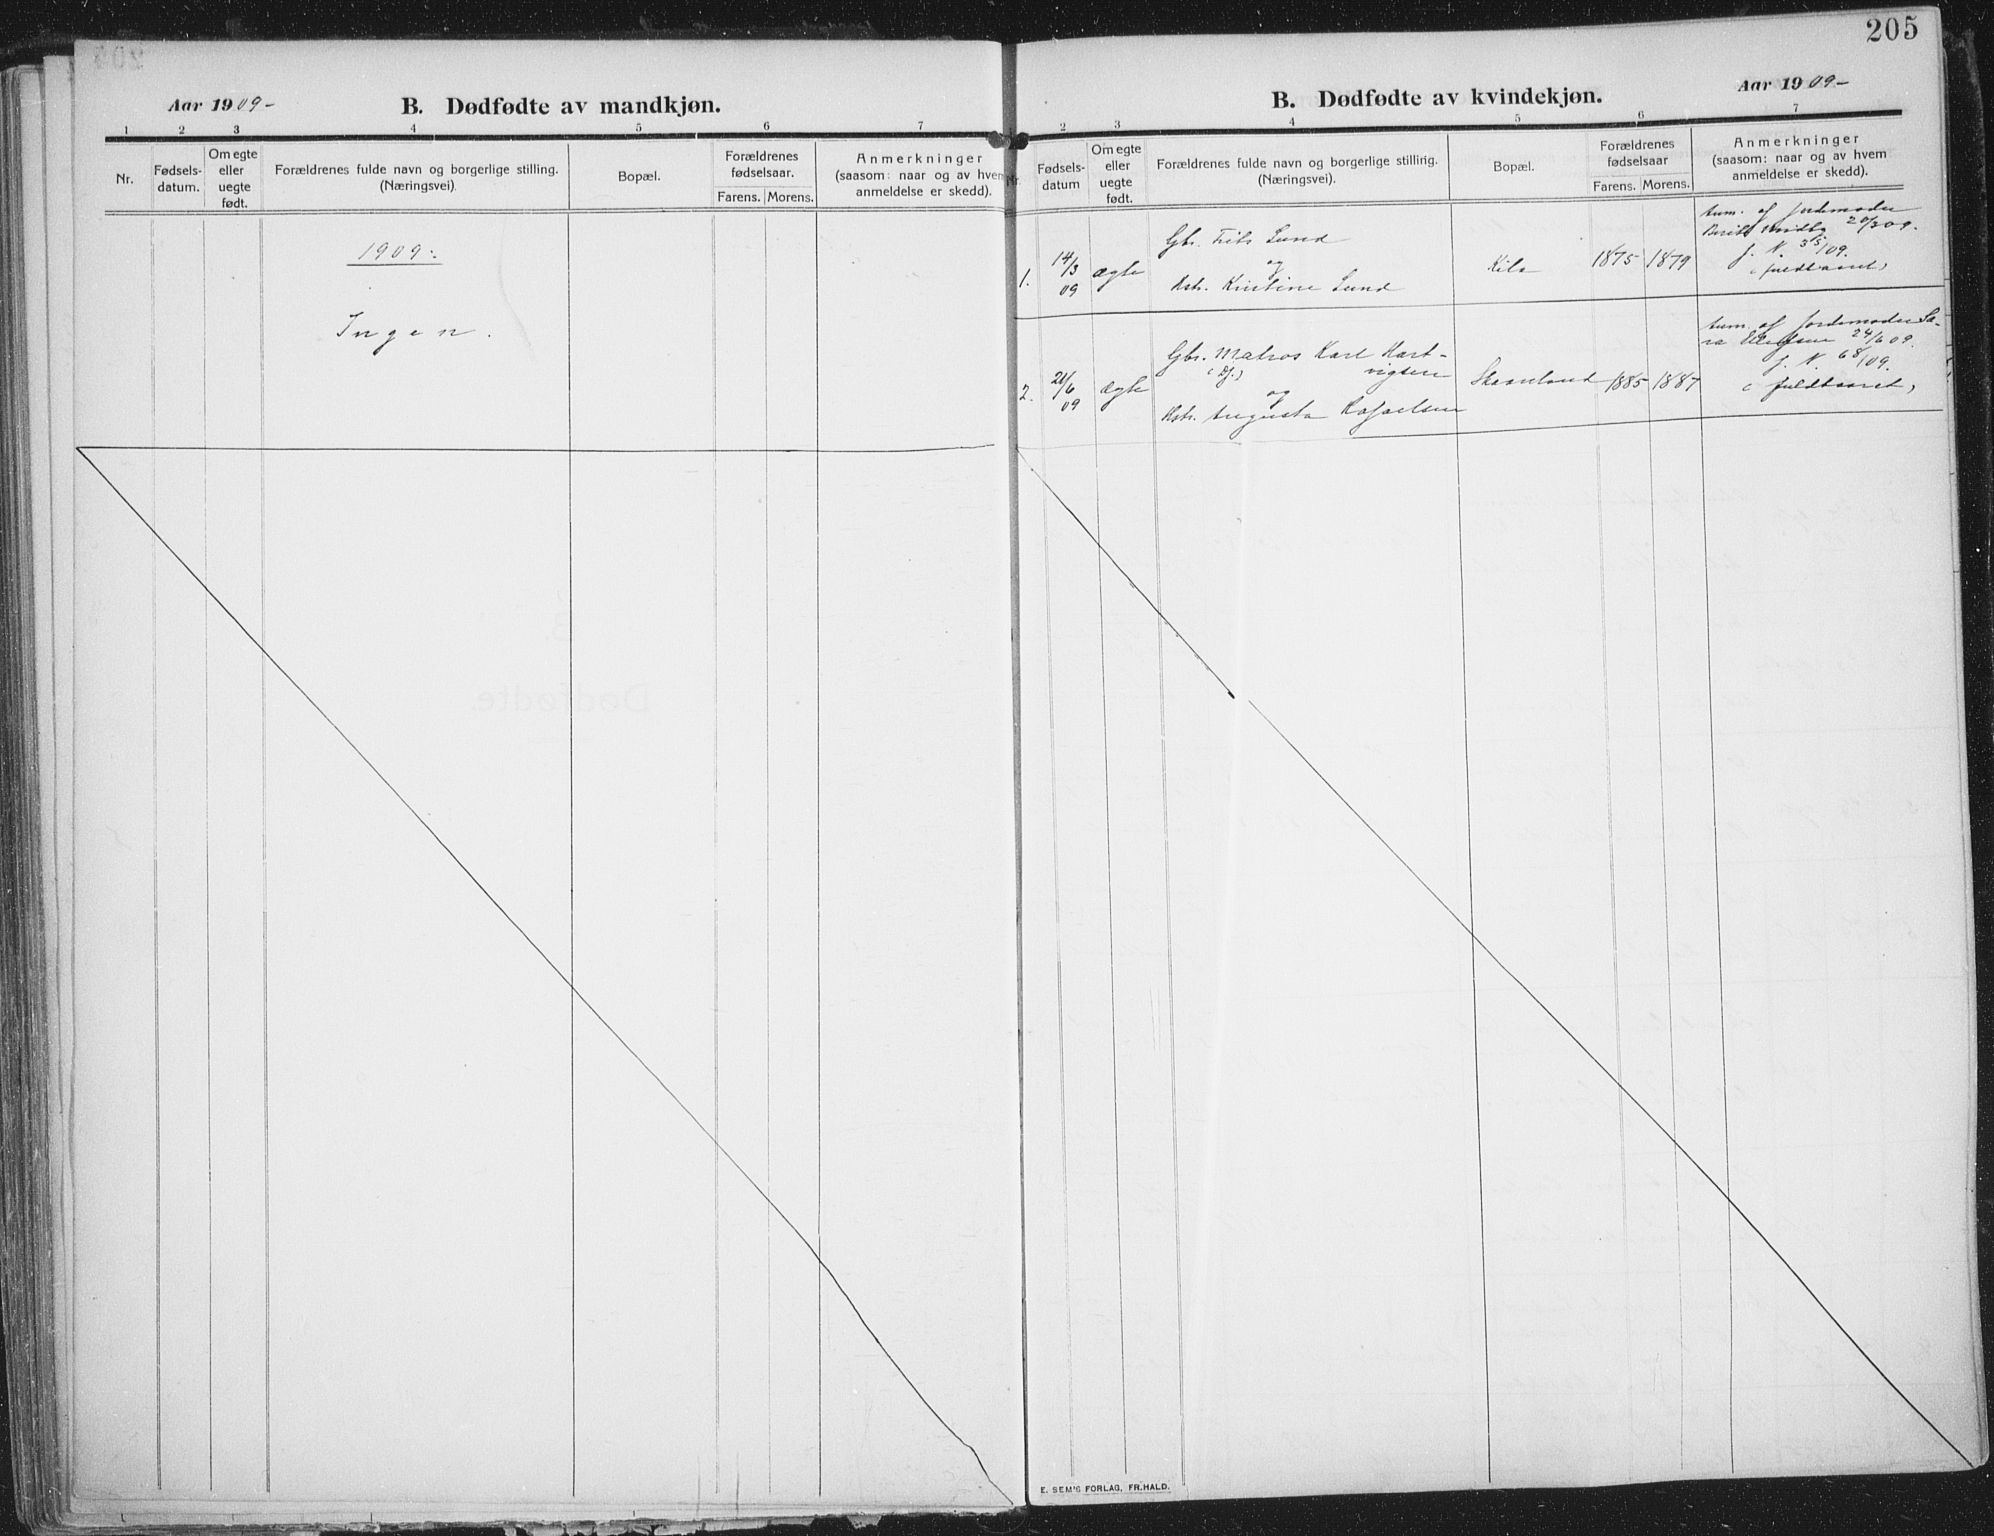 205
Aar 1909-
B. Dødfødte av mandkjøn.
1 2 3 4 5 6 7
Nr.
Fødsels-
datum.
Om egte
eller
uegte
født.
Forældrenes fulde navn og borgerlige stilling.
(Næringsvei).
Bopæl.
Forældrenes
fødselsaar.
Farens. Morens.
Anmerkninger
(saasom: naar og av hvem
anmeldelse er skedd).
1909:
Ingen.
B. Dødfødte av kvindekjøn.
Aar 1909-
2 3 4 5 6 7
Nr.
Fødsels-
datum
Om egte
eller
uegte
født.
Forældrenes fulde navn og borgerlige stillirig.
(Næringsvei).
Bopæl.
Forældrenes
fødselsaar
Farens. Morens.
Anmerkninger
(saasom: naar og av hvem
anmeldelse er skedd).
1.
14/3
09
ægte
Gbr. Frits Lund
og
Hstr. Kristine Lund
Kila
1875 1879
Anm. af jordemoder
20/3 09.
J. N. 35/09.
(fuldbaaret)
2.
21/6
09
ægte
Gbr. Matros Karl Hart-
vigsen
og
Hstr. Augusta Rafaelsen
Skaanland
1885 1887
Anm. af jordemoder Sa-
ra 24/6 09.
J. N. 68/09.
(fuldbaaret)
E. SEM'S FORLAG, FR.HALD.